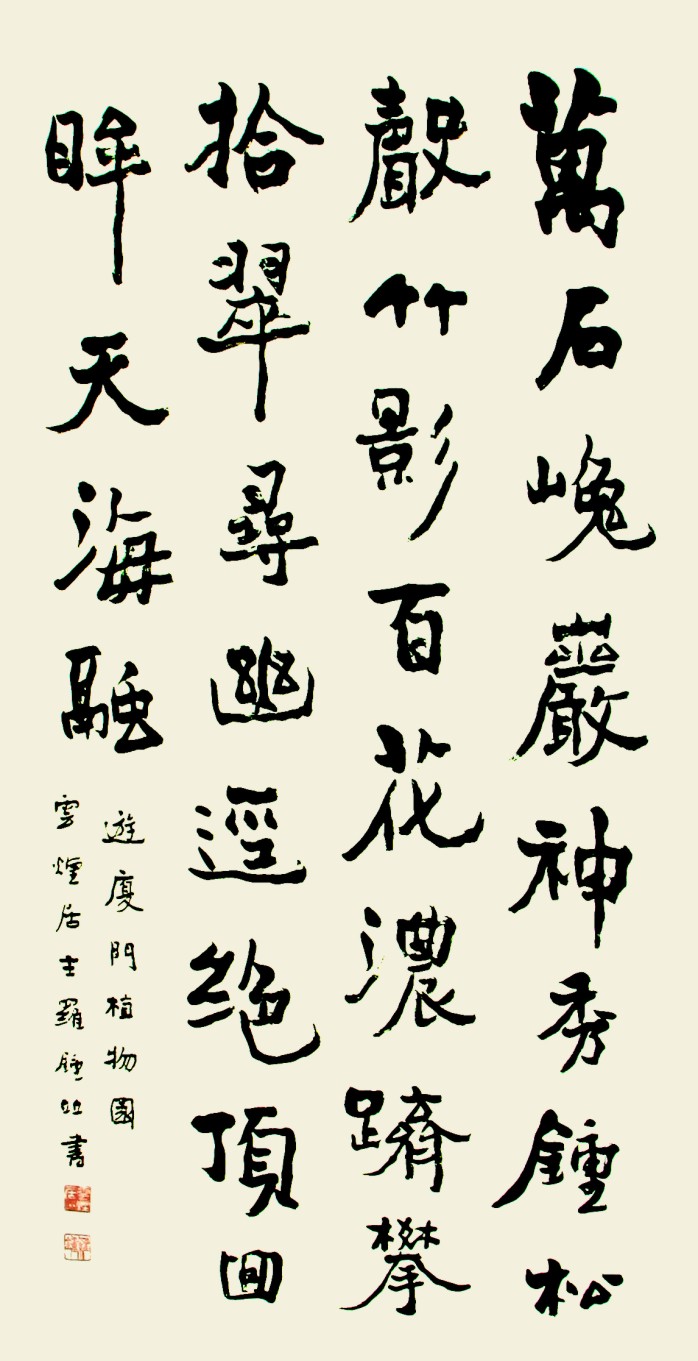 萬石巉巖神秀鍾松
聲竹影百花濃躋攀
拾翠尋幽逕絕頂回
眸天海融
遊廈門植物園
雲煙居士羅鍾书